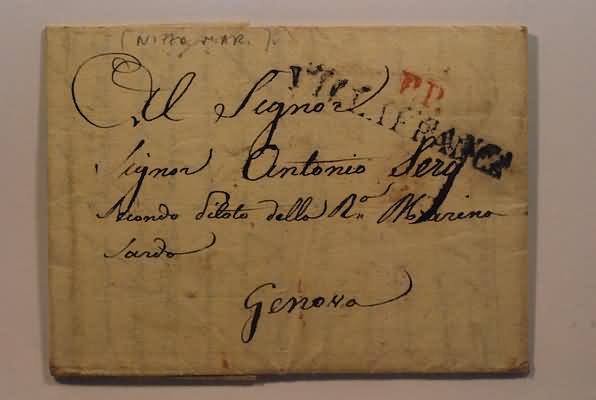 (NIZZA MAR.).
P.P.
VILLAFRANCA
Al Signor
Signor Antonio Serg
Secondo Piloto della Rª Marina
Sarda
Genova